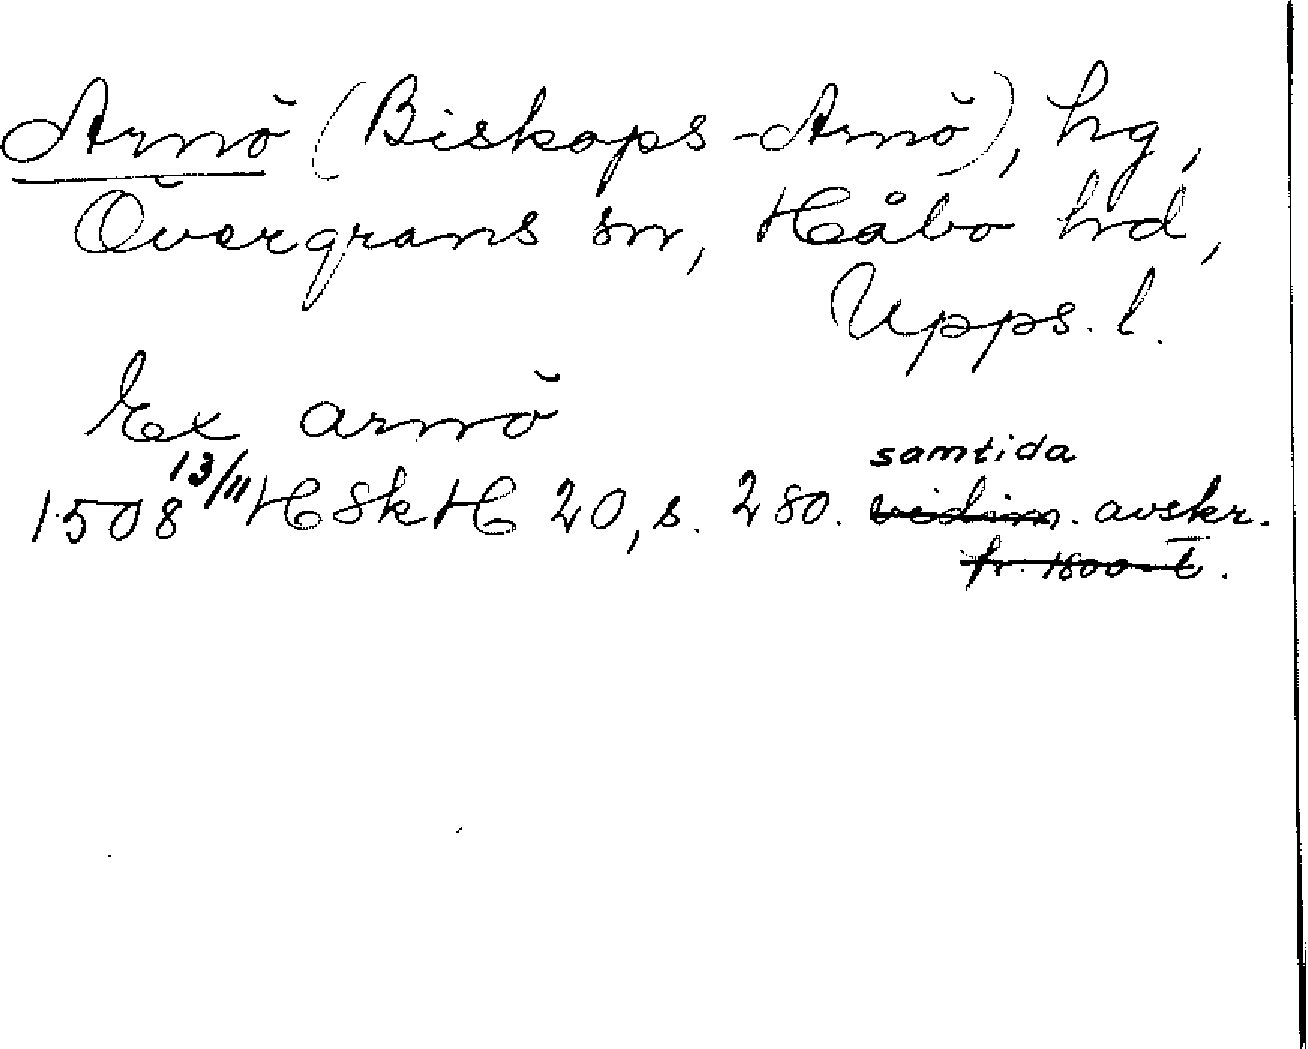 Arnö (Biskops-Arnö), hg,
Övergrans sn, Håbo hd,
Upps. l.
Ex arnö
samtida
1508 13/11 HSkH 20, s. 280. vidim. avskr.
fr. 1800-t.